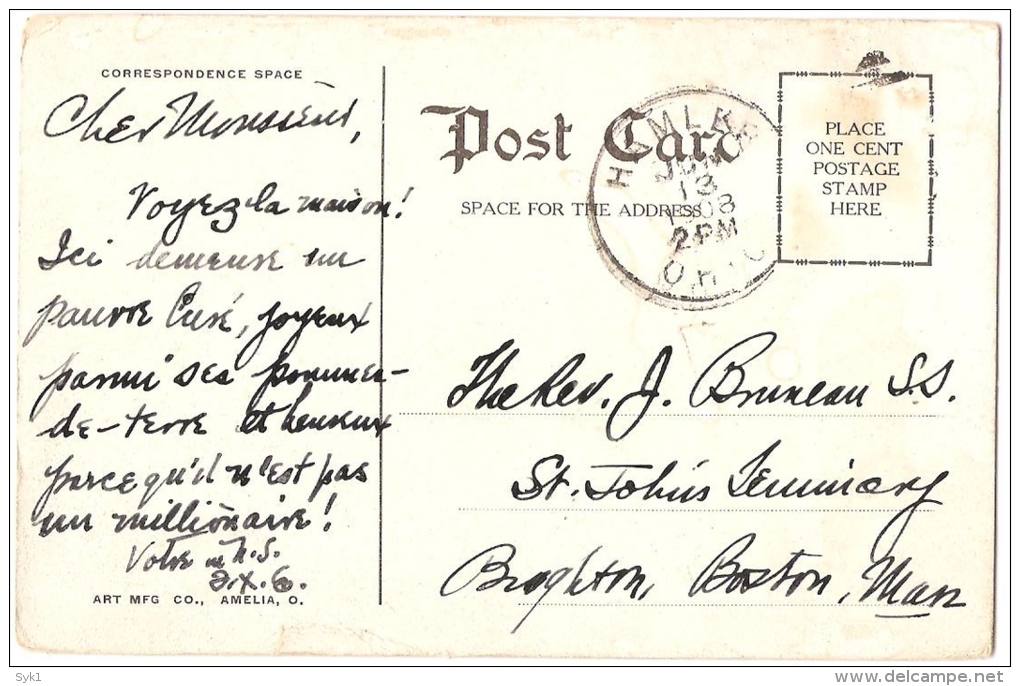 CORRESPONDENCE SPACE
Cher Monsieur,
Voyez la maison!
Ici demeure un
pauvre Curé, joyeux
parmi ses pommes-
de-terre et heureux
parce qu'il n'est pas
un millionaire!
Votre in N.S.
ART MFG CO., AMELIA, O.
Post Card
SPACE FOR THE ADDRESS
JUN
13
1908
2 PM
OHIO
PLACE
ONE CENT
POSTAGE
STAMP
HERE
The Rev. J. Bruneau S.S.
St. John's Seminary
Brighton, Boston, Mass
Syk1
delcampe.net